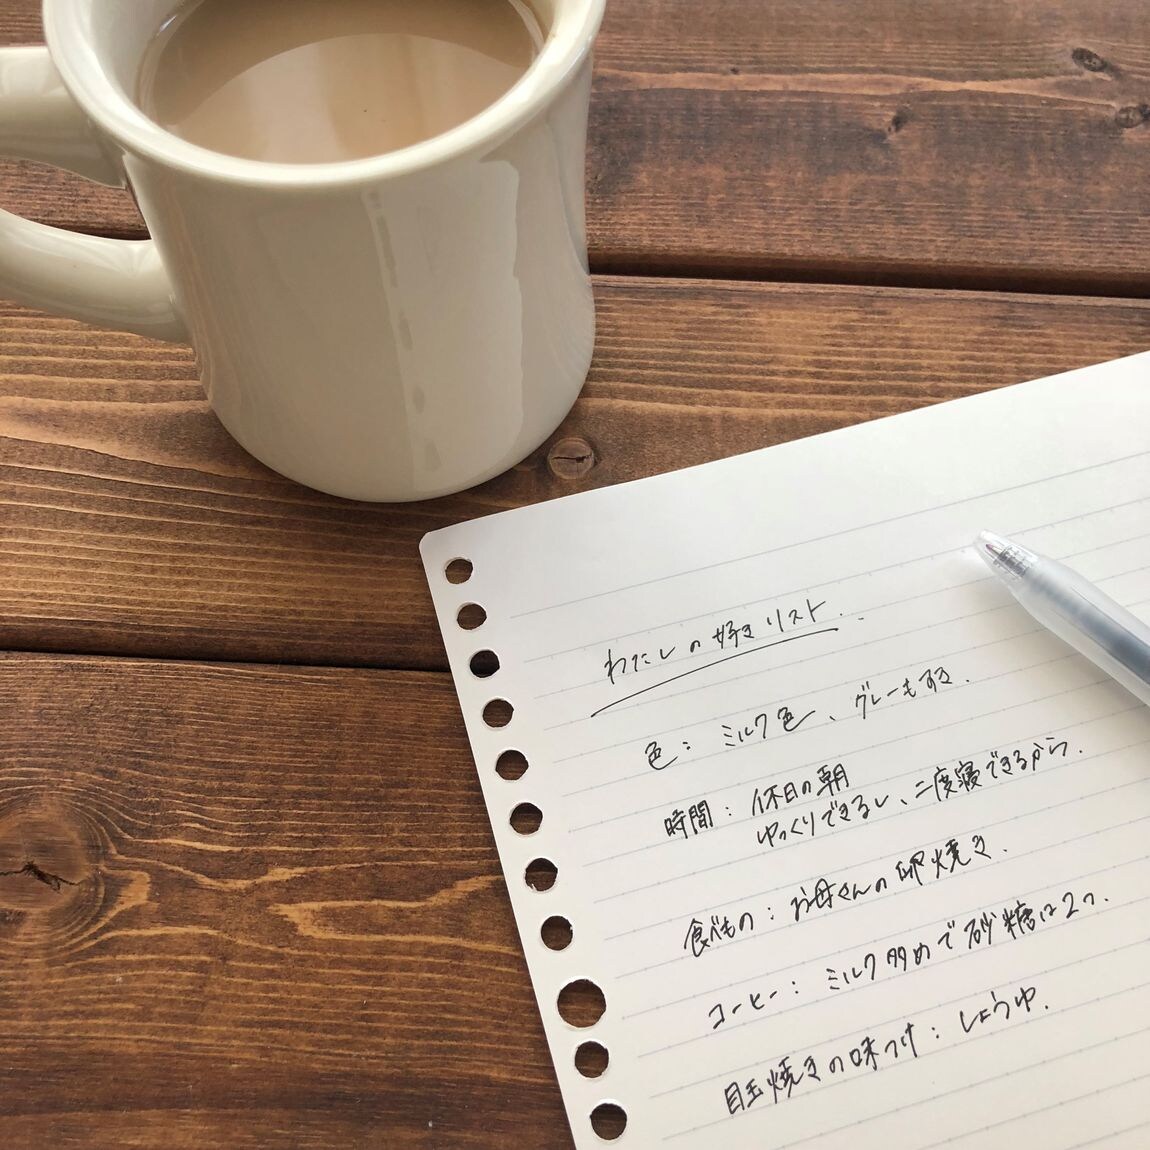 わたしの好きリスト.
色: ミルク色、グレーもすき.
時間: 休日の朝
ゆっくりできるし、二度寝できるから.
食べもの: お母さんの卵焼き.
コーヒー: ミルク多めで砂糖は2つ.
目玉焼きの味つけ: しょうゆ.